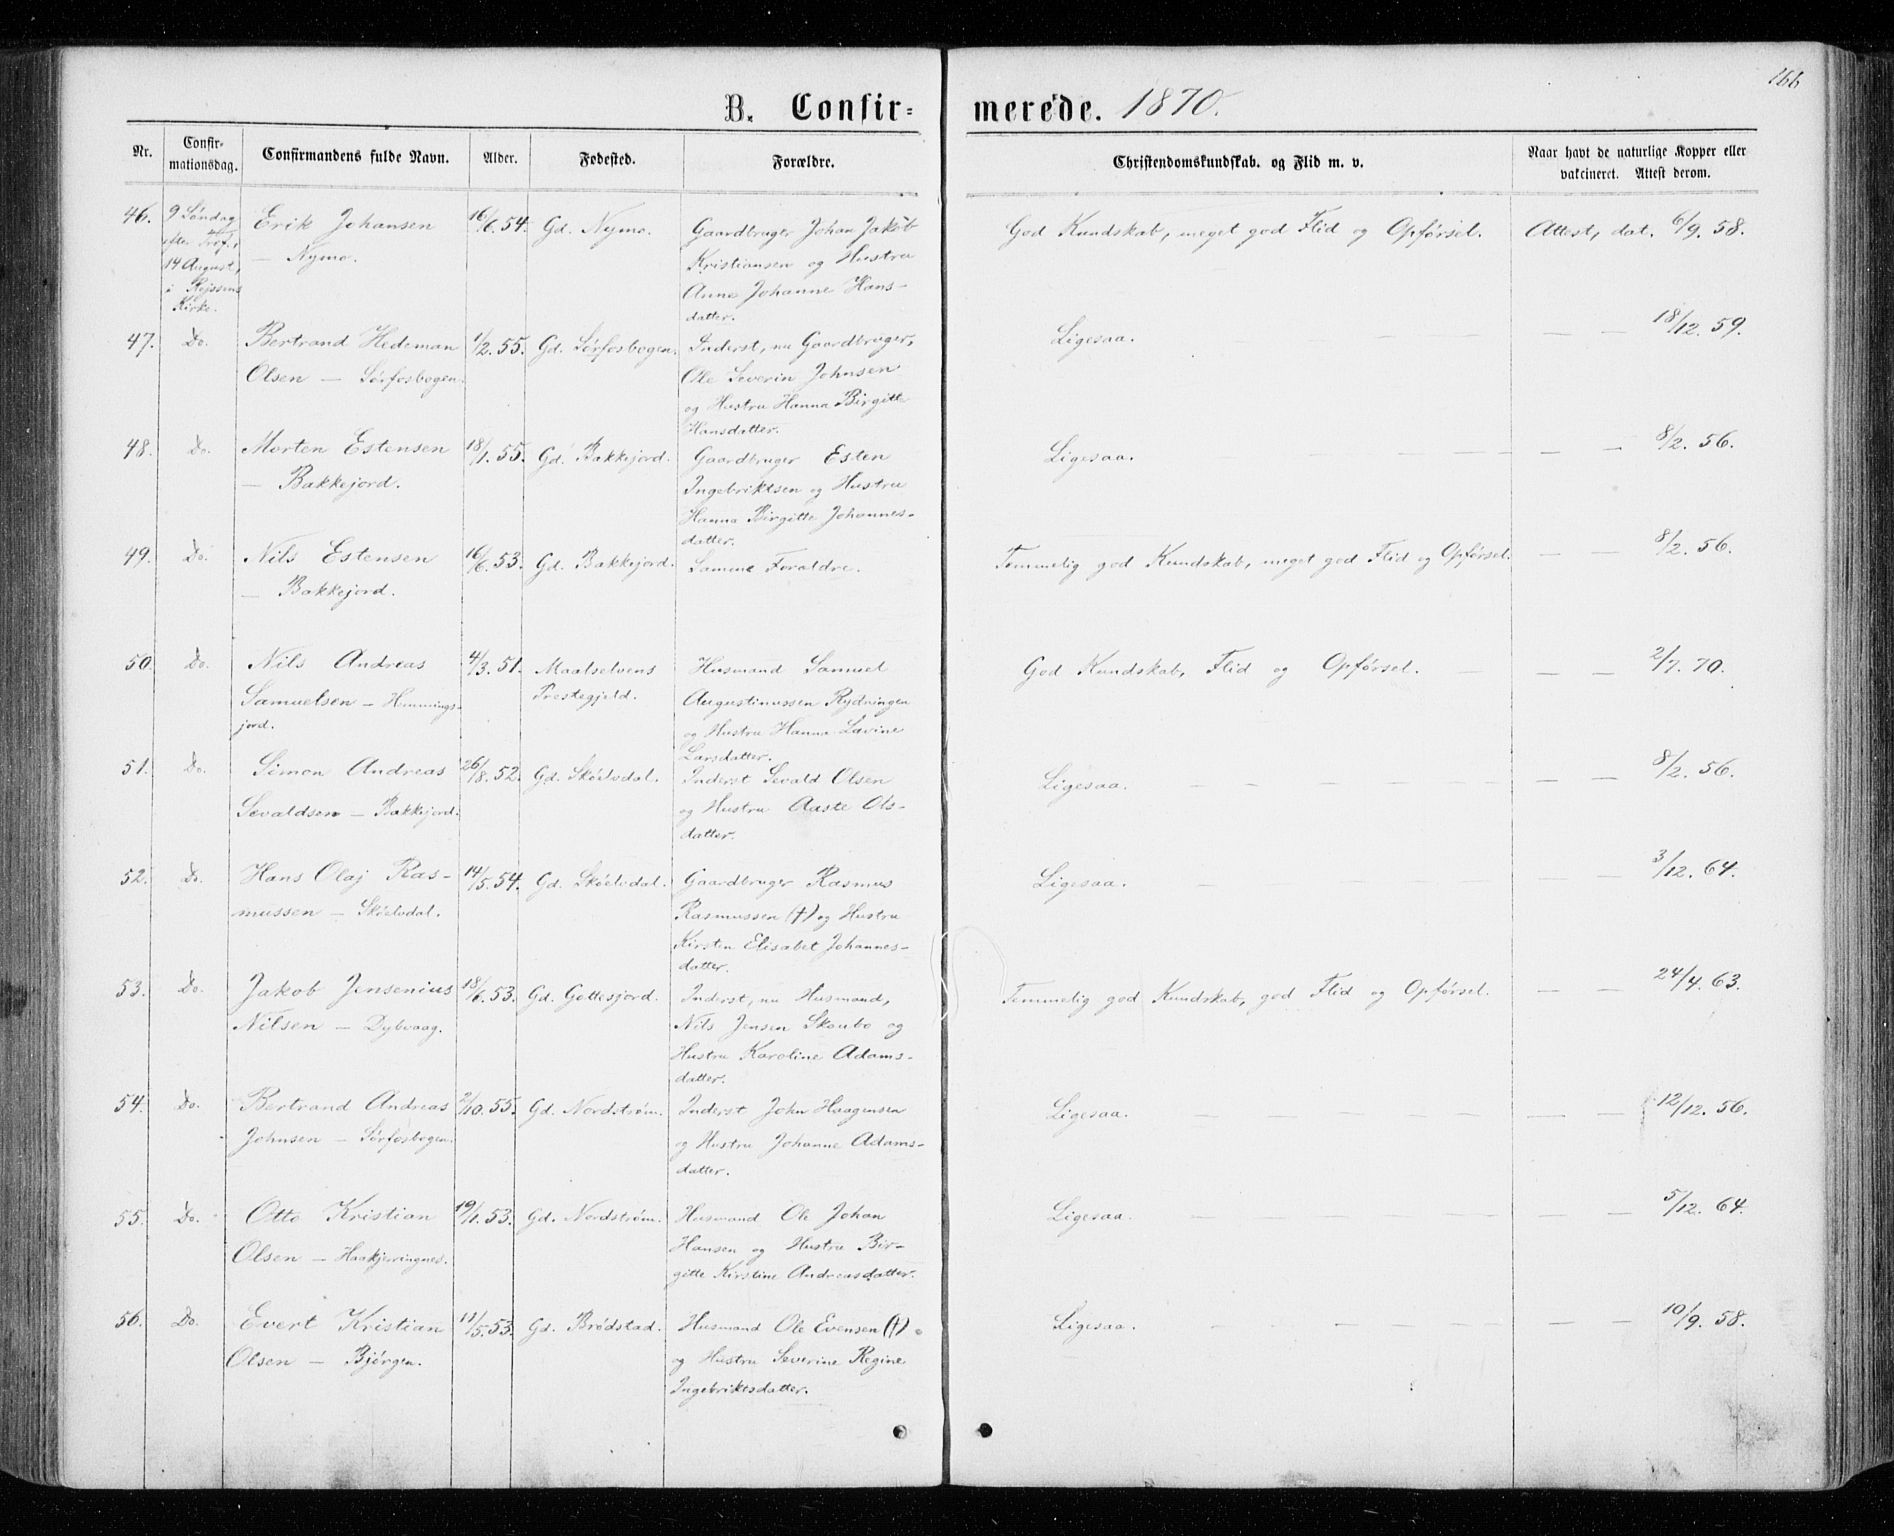 166
B. Confir= merede. 1870.
Nr. Confir-mationsdag. Confirmandens fulde Navn. Alder. Fødested. Forældre. Christendomskundskab. og Flid m. v. Naar havt de naturlige Kopper eller vakcineret. Attest derom.
46. 9 Søndag Erik Johansen 16/6. 54. Gd. Nymo. Gaardbruger Johan Jakob God Kundskab, meget god Flid og Opførsel. Attest, dat. 6/9. 58.
efter Tref., — Nymo. Kristiansen og Hustru
14 August, Anne Johanne Hans-
i Rejssens datter.
Kirke.
47. Do. Bertrand Hedeman 1/2. 55. Gd. Sørfosbogen. Inderst, nu Gaardbruger, Ligesaa. — — 18/12. 59.
Olsen — Sørfosbogen. Ole Severin Johnsen
og Hustru Hanna Birgitte
Hansdatter.
48. Do. Morten Estensen 18/1. 55. Gd. Bakkejord. Gaardbruger Esten Ligesaa. — — 8/2. 56.
— Bakkejord. Ingebriktsen og Hustru
Hanna Birgitte Johannes-
datter.
49. Do. Nils Estensen 16/6. 53. Gd. Bakkejord. Samme Forældre. Temmelig god Kundskab, meget god Flid og Opførsel. — — 8/2. 56.
— Bakkejord.
50. Do. Nils Andreas 4/3. 51. Maalselvens Husmand Samuel God Kundskab, Flid og Opførsel. — — — 2/7. 70.
Samuelsen — Hemmings- Prestegjeld. Augustinussen Rydningen
jord. og Hustru Hanna Lavine
Larsdatter.
51. Do. Simon Andreas 26/8. 52. Gd. Skøelvdal. Inderst Sevald Olsen Ligesaa. — — 8/2. 56.
Sevaldsen — Bakkejord. og Hustru Aaste Ols-
datter.
52. Do. Hans Olaj Ras- 14/5. 54. Gd. Skøelvdal. Gaardbruger Rasmus Ligesaa. — — 3/12. 64.
mussen — Skøelvdal. Rasmussen (†) og Hustru
Kirsten Elisabet Johannes-
datter.
53. Do. Jakob Jensenius 18/6. 53. Gd. Gottesjord. Inderst, nu Husmand, Temmelig god Kundskab, god Flid og Opførsel. — — 24/4. 63.
Nilsen — Dybvaag. Nils Jensen Skoubo og
Hustru Karoline Adams-
datter.
54. Do. Bertrand Andreas 2/10. 55. Gd. Nordstrøm. Inderst John Haagensen Ligesaa. — — 12/12. 56.
Johnsen — Sørfosbogen. og Hustru Johanne Adams-
datter.
55. Do. Otto Kristian 19/1. 53. Gd. Nordstrøm. Husmand Ole Johan Ligesaa. — — 5/12. 64.
Olsen — Haakjerringnes. Hansen og Hustru Bir-
gitte Kirstine Andreasdatter.
56. Do. Evert Kristian 11/5. 53. Gd. Brødstad. Husmand Ole Evensen (†) Ligesaa. — — 10/9. 58.
Olsen — Bjørgen. og Hustru Severine Regine
Ingebriktsdatter.